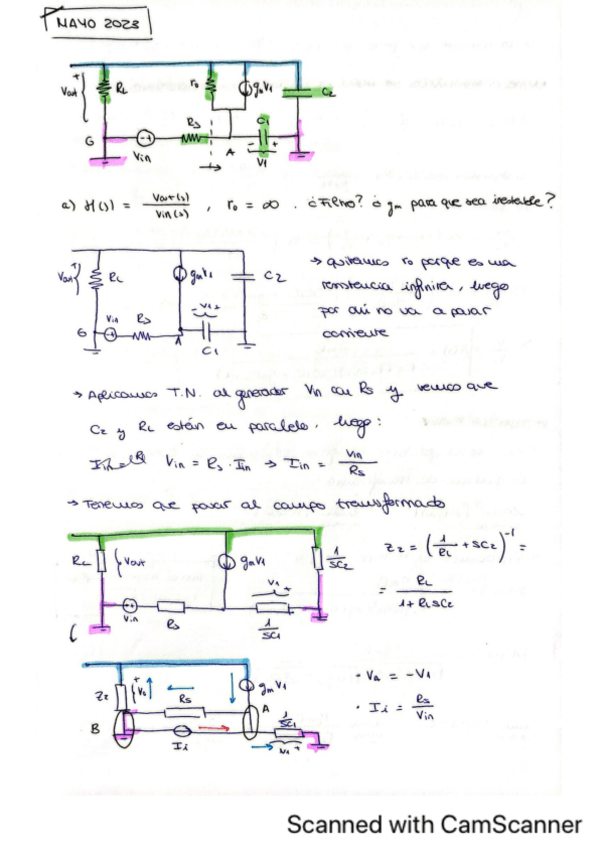 MAYO 2023
Vout
+
RL
ro
gmV1
C2
G
Vin
Rs
A
C1
- +
V1
a) H(s) = Vout(s) / Vin(s) , ro = ∞ . ¿Filtro? ¿ gm para que sea inestable?
Vout
RL
gmV1
C2
G
Vin
Rs
A
- V1 +
C1
→ quitamos ro porque es una
resistencia infinita, luego
por ahí no va a pasar
corriente
→ Aplicamos T.N. al generador Vin con Rs y vemos que
C2 y RL están en paralelo, luego:
Vin = Rs · Iin → Iin = Vin / Rs
→ Tenemos que pasar al campo transformado
RL
Vout
gmV1
1/SC2
Vin
Rs
V1 +
1/SC1
Z2 = (1/RL + SC2)^-1 =
= RL / 1 + RLSC2
Z2
+
Vo
Rs
gmV1
A
B
Ii
1/SC1
V1 +
· Va = -V1
· Ii = Rs / Vin
Scanned with CamScanner